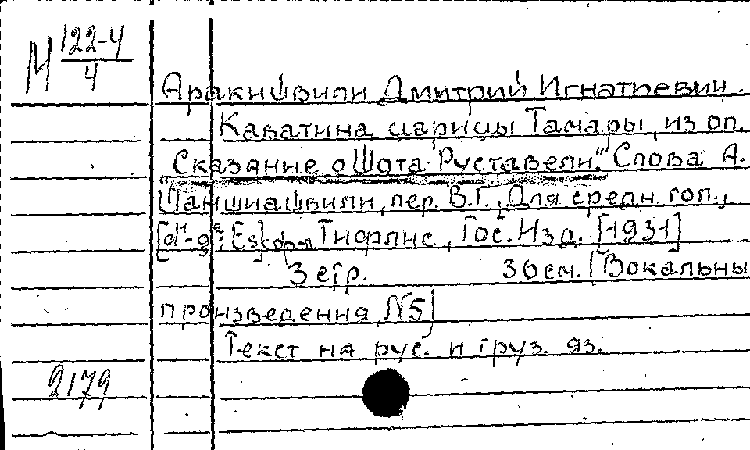 М 122-4
4
Аракишвили Дмитрий Игнатиевич.
Каватина царицы Тамары, из оп.
"Сказание о Шота Руставели." Слова А.
Шаншиашвили, пер. В.Г., Для средн. гол.,
Тифлис, Гос. Изд. [1931]
3 стр. 36 см. (Вокальны
произведения, №5)
Текст на рус. и груз. яз.
2179